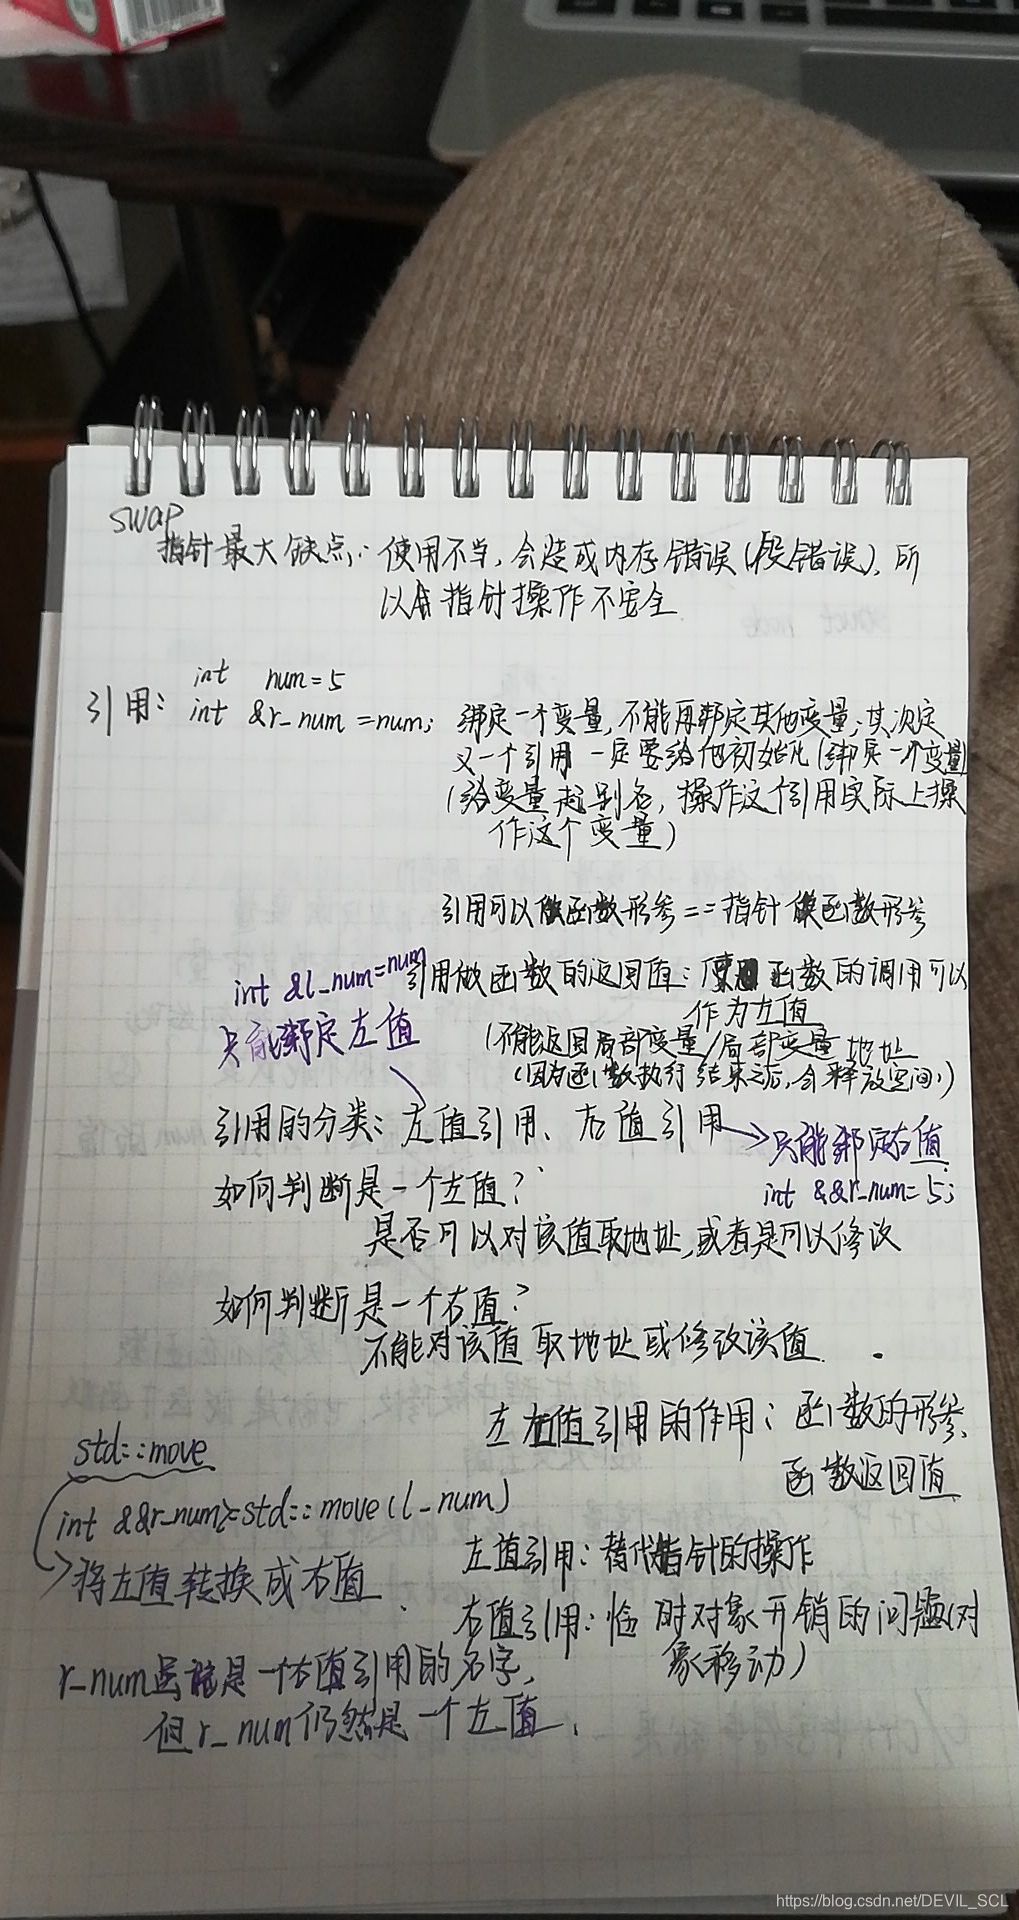 swap
指针最大缺点: 使用不当,会造成内存错误(段错误),所
以用指针操作不安全
int num=5
引用: int &r_num =num;
绑定一个变量,不能再绑定其他变量;其次定
义一个引用 一定要给他初始化(绑定一个变量)
(给变量起别名,操作这个引用实际上操
作这个变量)
引用可以做函数形参 == 指针做函数形参
int &l_num=num
只能绑定左值
引用做函数的返回值: 函数的调用可以
作为左值
(不能返回局部变量/局部变量地址
(因为函数执行结束之后,会释放空间))
引用的分类: 左值引用、右值引用
只能绑定右值
int &&r_num=5;
如何判断是一个左值?
是否可以对该值取地址,或者是可以修改
如何判断是一个右值?
不能对该值取地址或修改该值.
左右值引用的作用: 函数的形参、
函数返回值
std::move
int &&r_num2=std::move(l_num)
将左值转换成右值
左值引用: 替代指针的操作
右值引用: 临时对象开销的问题(对
象移动)
r_num虽然是一个右值引用的名字,
但r_num仍然是一个左值.
https://blog.csdn.net/DEVIL_SCL